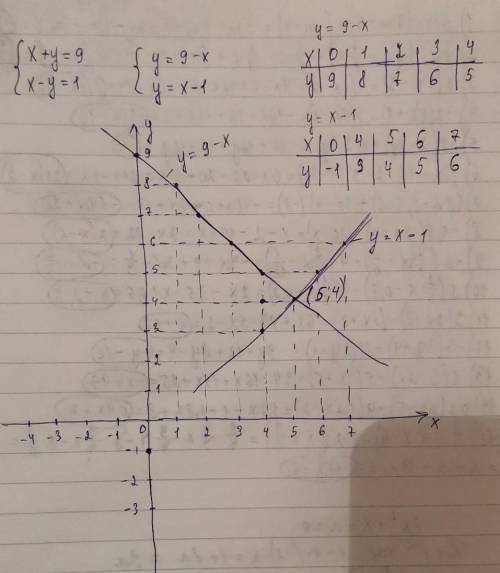 {x+y=9
x-y=1
{y=9-x
y=x-1
y=9-x
x|0|1|2|3|4
y|9|8|7|6|5
y=x-1
x|0|4|5|6|7
y|-1|3|4|5|6
y
9
y=9-x
8
7
6
y=x-1
5
(5;4)
4
3
2
1
-4 -3 -2 -1 0 1 2 3 4 5 6 7 x
-1
-2
-3